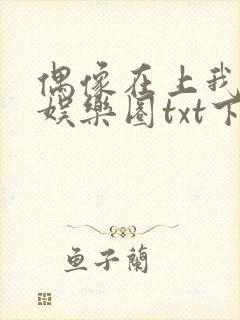 偶像在上我
娱乐圈txt下
鱼子蘭